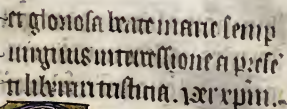 et gloriosa beate marie semp
uirginis intercessione a prese
ti liberari tristicia. Per xpm.